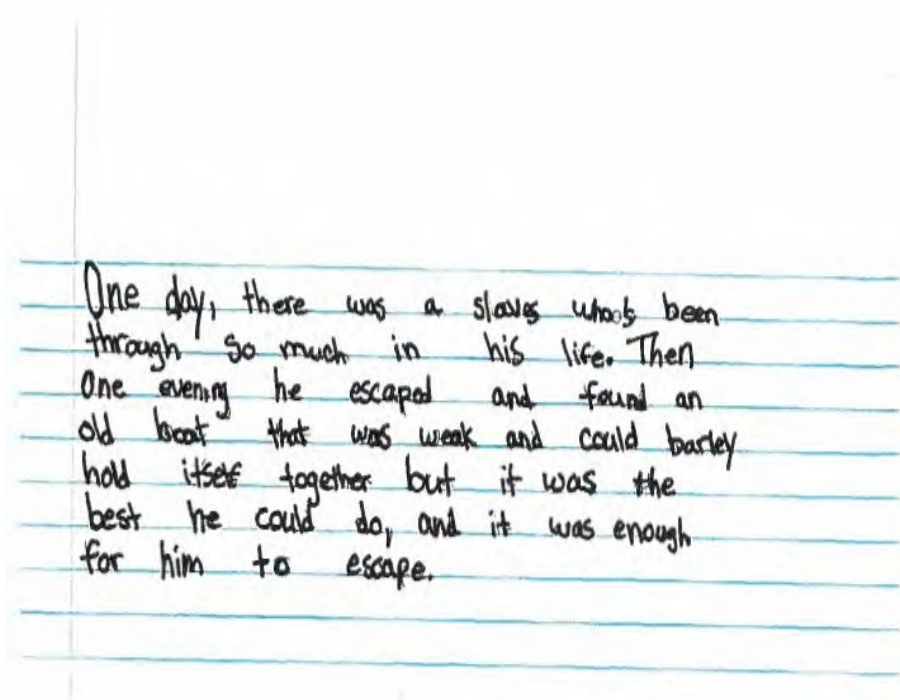 One day, there was a slaves who's been
through so much in his life. Then
one evening he escaped and found an
old boat that was weak and could barley
hold itself together but it was the
best he could do, and it was enough
for him to escape.